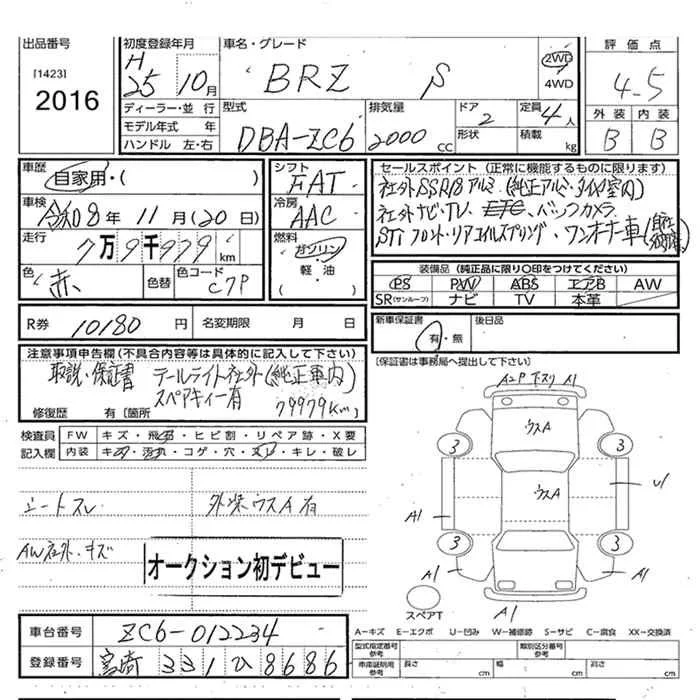 出品番号
[1423]
2016
初度登録年月
H
25 10月
車名・グレード
BRZ S
2WD
4WD
評価点
4.5
外装 内装
B B
ディーラー・並行
モデル年式 年
ハンドル 左・右
型式
DBA-ZC6
排気量
2000 CC
ドア
2
形状
定員
4人
積載
kg
車歴
自家用・( )
車検
令和8年 11月(20日)
走行
7万9千979km
色
赤
色替
色コード
C7P
シフト
FAT
冷房
AAC
燃料
ガソリン
軽・油
( )
セールスポイント(正常に機能するものに限ります)
社外SSR18アルミ(純正アルミ・タイヤ室内)
社外ナビ・TV、ETC、バックカメラ
STi フロント・リアコイルスプリング・ワンオーナー車
装備品(純正品に限り〇印をつけてください)
PS PW ABS エアB AW
SR(サンルーフ) ナビ TV 本革
R券 10180円
名変期限 月 日
新車保証書
有・無
後日品
(保証書は事務局へ提出して下さい)
注意事項申告欄(不具合内容等は具体的に記入して下さい)
取説・保証書 テールライト社外(純正車内)
スペアキィー有 79979Km
修復歴 有〔箇所
検査員
記入欄
FW キズ・飛石・ヒビ割・リペア跡・X要
内装 キズ・汚れ・コゲ・穴・スレ・キレ・破レ
シートスレ
外装ウスA有
AW社外・キズ
オークション初デビュー
A2P 下スリ A1
ウスA
3 3
ウスA
A1
U1
3 3
A1 A1
スペアT
A1
車台番号 ZC6-012234
登録番号 宮崎 331 ひ 8686
A-キズ E-エクボ U-凹み W-補修跡 S-サビ C-腐食 XX-交換済
型式指定番号
参考
類別区分番号
参考
車庫証明用
参考
長さ cm
幅 cm
高さ cm